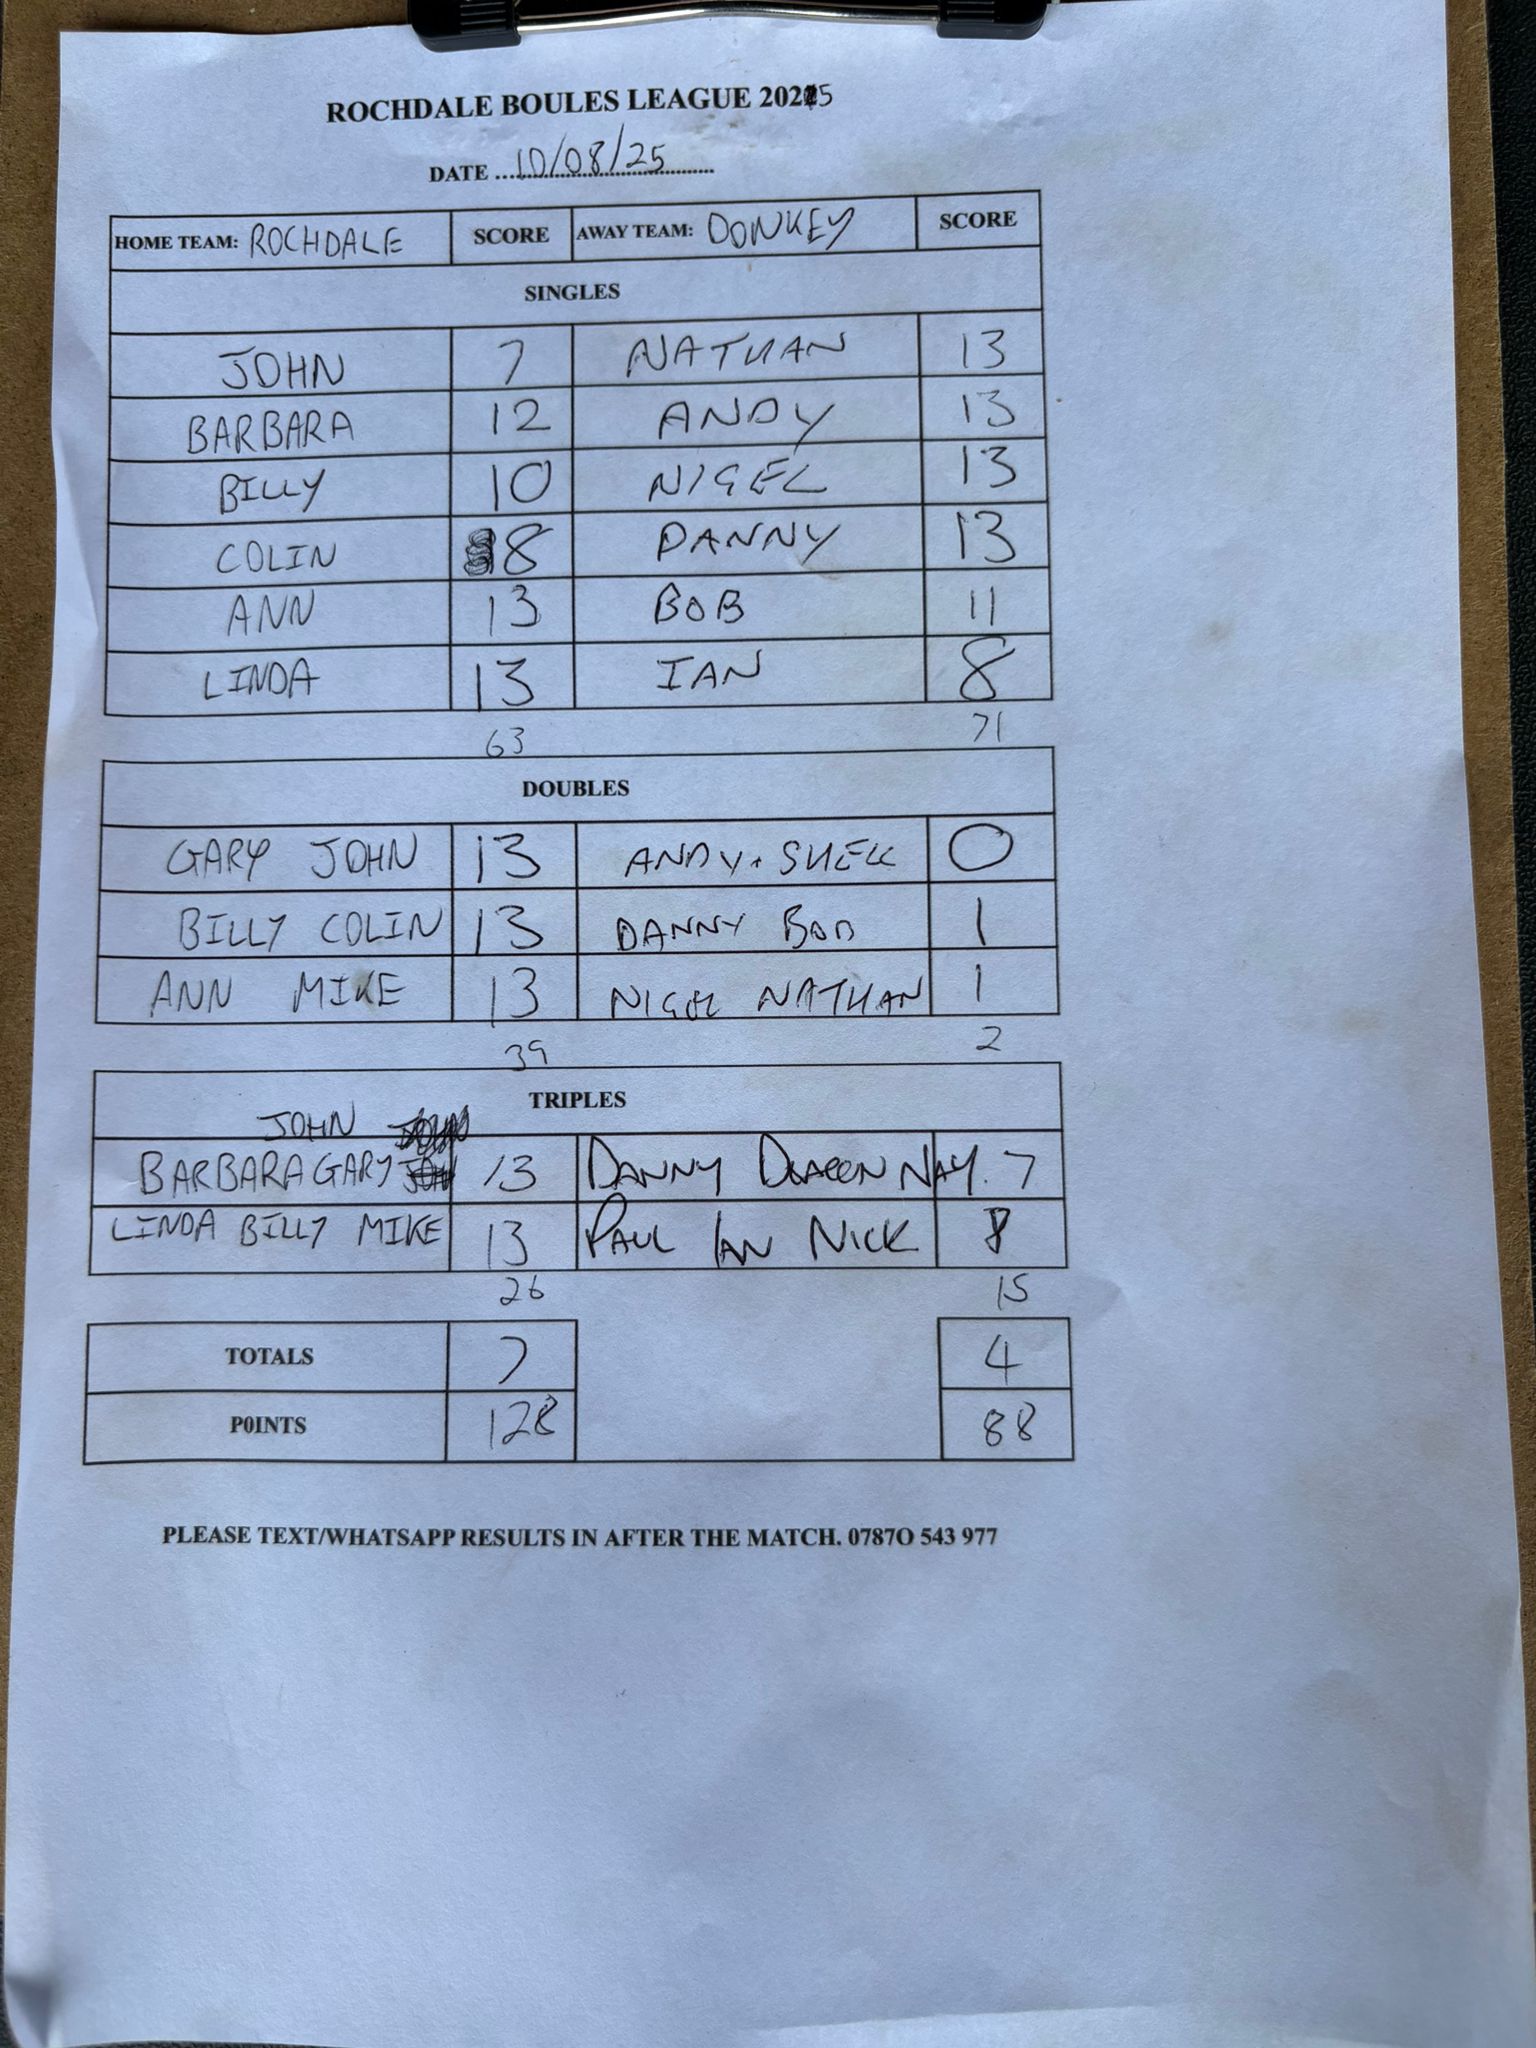 ROCHDALE BOULES LEAGUE 2025
DATE 10/08/25
HOME TEAM: ROCHDALE SCORE AWAY TEAM: DONKEY SCORE
SINGLES
JOHN 7 NATHAN 13
BARBARA 12 ANDY 13
BILLY 10 NIGEL 13
COLIN 8 DANNY 13
ANN 13 BOB 11
LINDA 13 IAN 8
63 71
DOUBLES
GARY JOHN 13 ANDY + SHELL 0
BILLY COLIN 13 DANNY BOB 1
ANN MIKE 13 NIGEL NATHAN 1
39 2
TRIPLES
JOHN
BARBARA GARY 13 DANNY 7
LINDA BILLY MIKE 13 PAUL IAN NICK 8
26 15
TOTALS 7 4
P0INTS 128 88
PLEASE TEXT/WHATSAPP RESULTS IN AFTER THE MATCH. 0787O 543 977